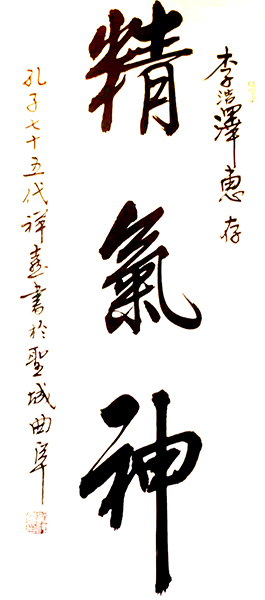 李浩澤惠存
精氣神
孔子七十五代祥憙書於聖城曲阜